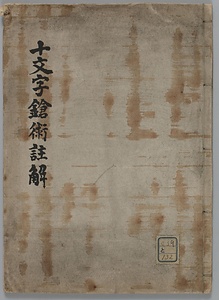 十文字鎗術註解